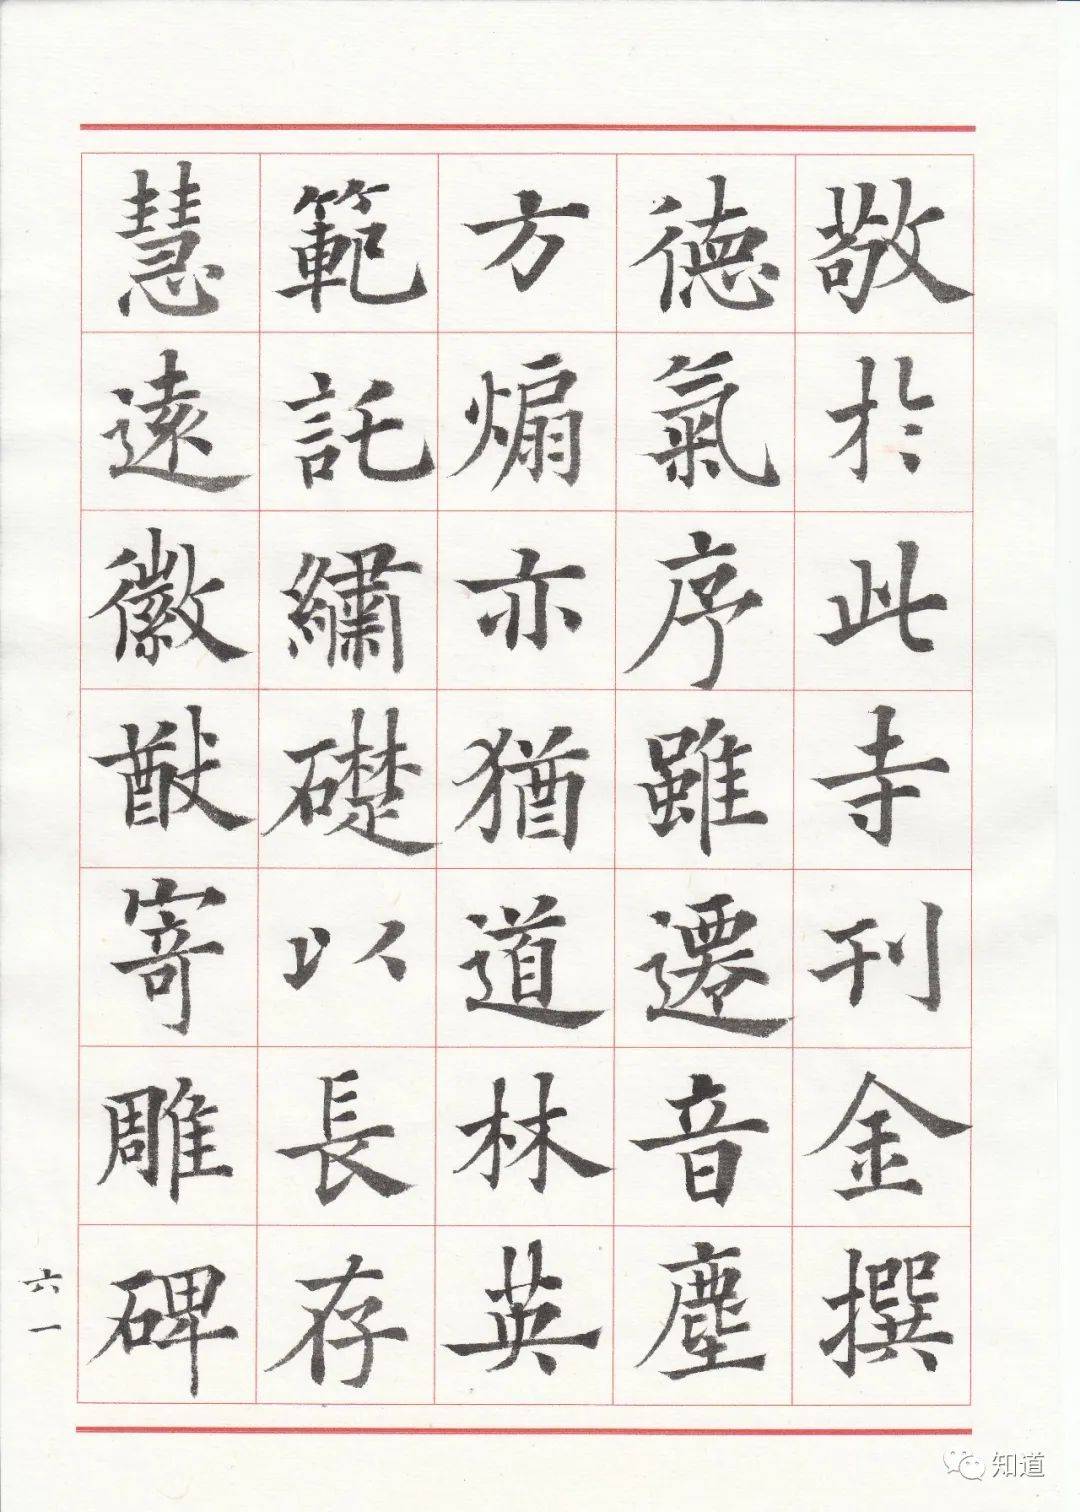 敬於此寺刊金撰
德氣序雖遷音塵
方煽亦猶道林英
範託繡礎以長存
慧遠徽猷寄雕碑
六一
知道